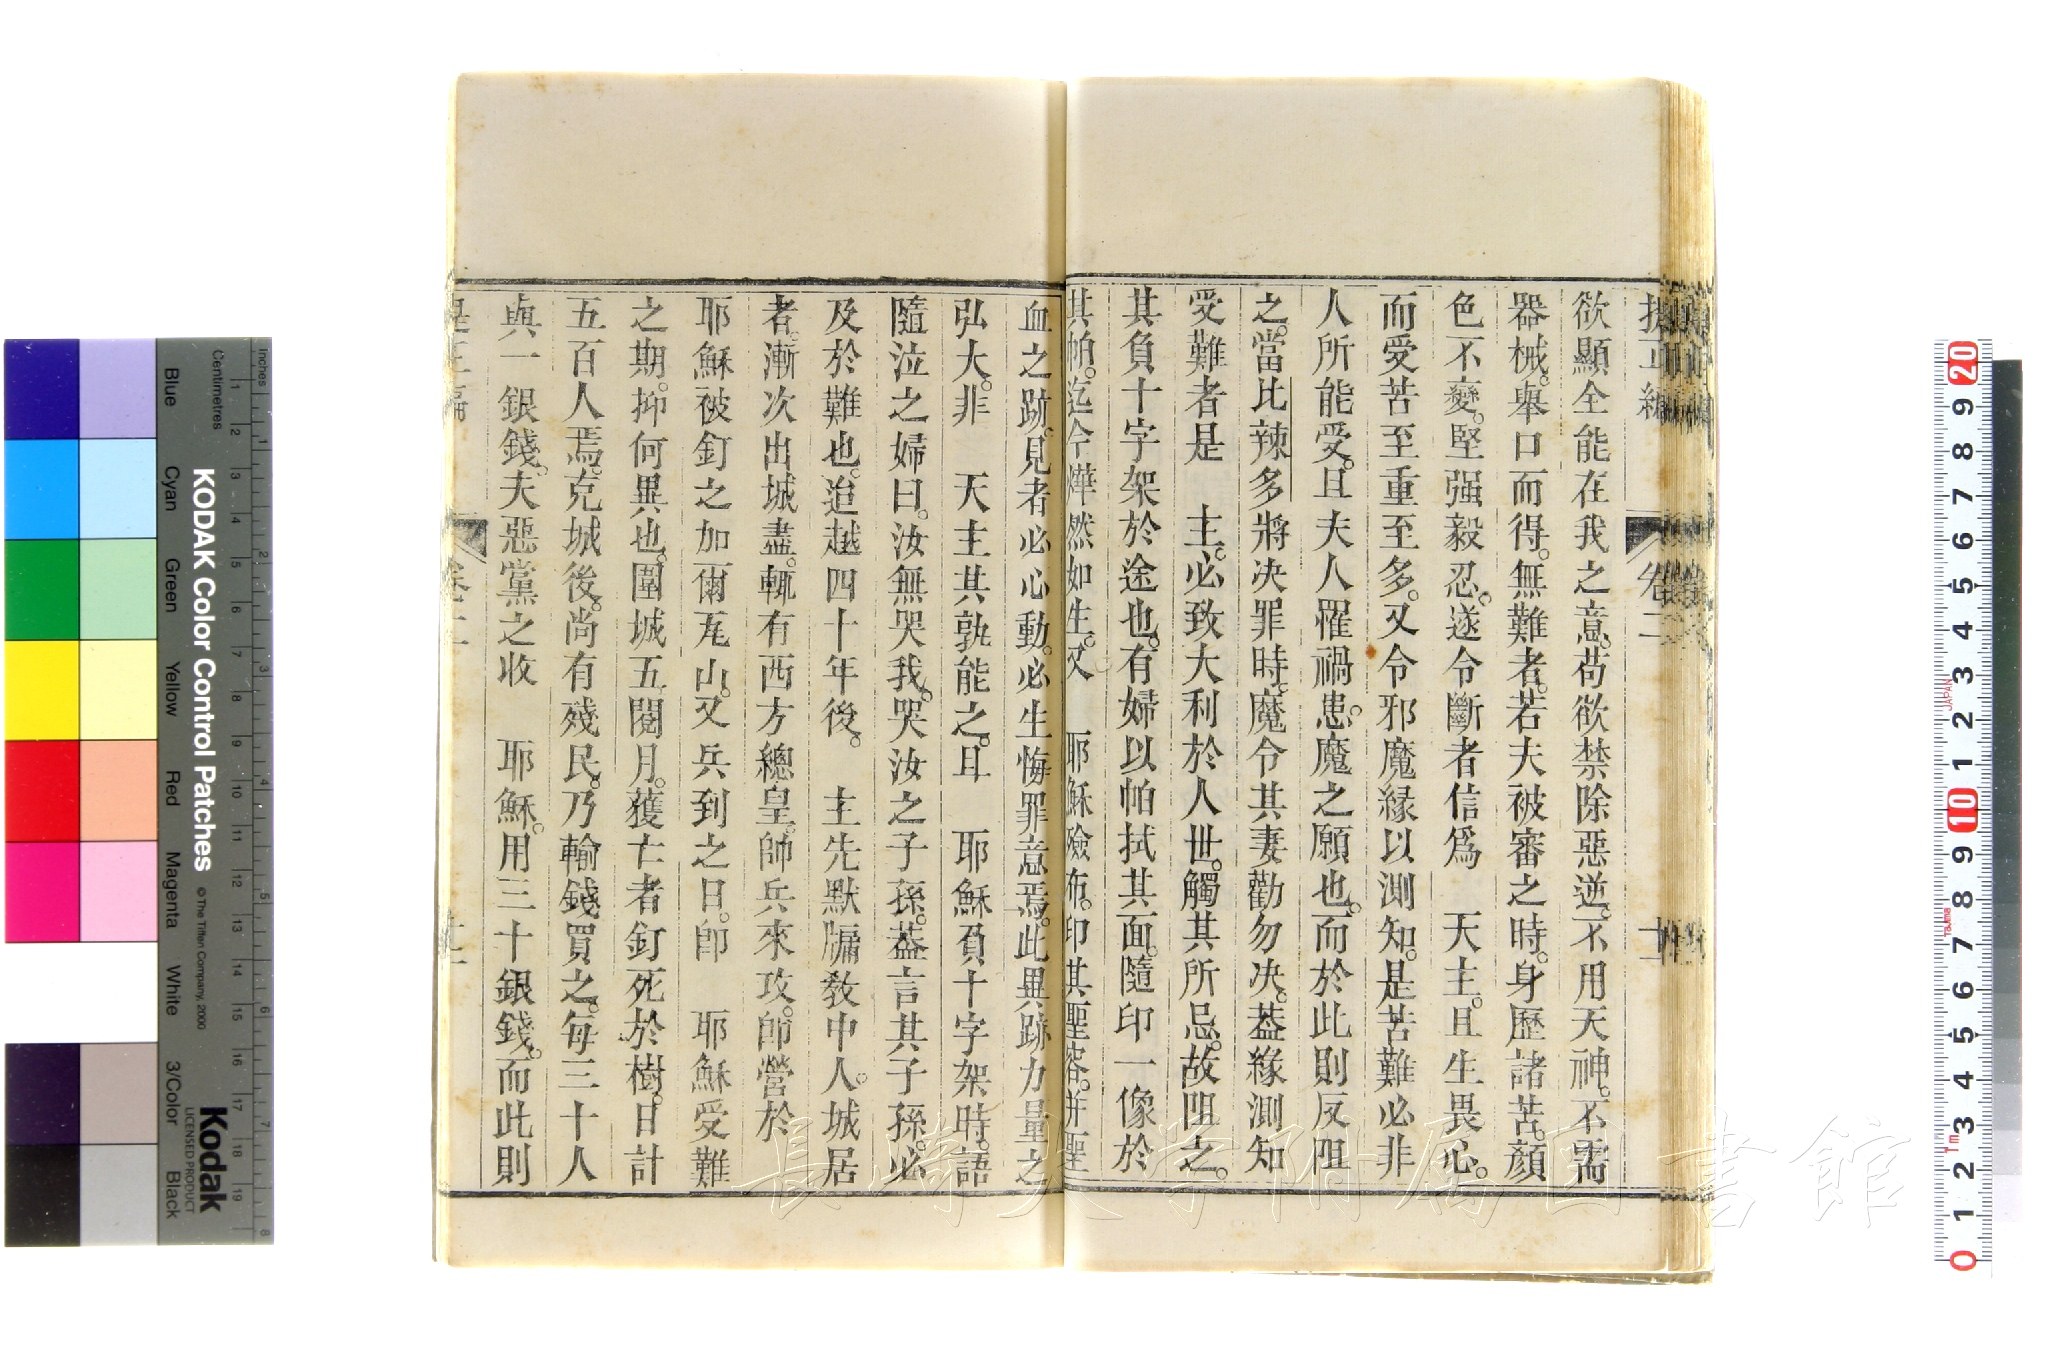 欲顯全能在我之意。苟欲禁除惡逆。不用天神。不需
器械。舉口而得。無難者。若夫被審之時。身歷諸苦。顏
色不變。堅强毅忍。遂令斷者信爲 天主。且生畏心。
而受苦至重至多。又令邪魔緣以測知。是苦難必非
人所能受。且夫人罹禍患。魔之願也。而於此則反阻
之。當比辣多將決罪時。魔令其妻勸勿決。葢緣測知
受難者是 主。必致大利於人世。觸其所忌。故阻之。
其負十字架於途也。有婦以帕拭其面。隨印一像於
其帕。迄今燁然如生。又 耶穌殮布。印其聖容。并聖
血之跡。見者必心動。必生悔罪意焉。此異跡力量之
弘大。非 天主其孰能之。且 耶穌負十字架時。語
隨泣之婦曰。汝無哭我。哭汝之子孫。葢言其子孫。必
及於難也。迨越四十年後。 主先默牖敎中人。城居
者。漸次出城盡。輒有西方總皇。帥兵來攻。師營於
耶穌被釘之加爾瓦山。又兵到之日。卽 耶穌受難
之期。抑何異也。圍城五閱月。獲亡者釘死於樹。日計
五百人焉。克城後。尚有殘民。乃輸錢買之。每三十人
與一銀錢。夫惡黨之收 耶穌。用三十銀錢。而此則
卷二
十一
KODAK Color Control Patches
© The Tiffen Company, 2000
Kodak
LICENSED PRODUCT
Inches
Centimetres
Blue
Cyan
Green
Yellow
Red
Magenta
White
3/Color
Black
1 2 3 4 5 6 7 8 9 10 11 12 13 14 15 16 17 18 19
1 2 3 4 5 6 8
20 9 8 7 6 5 4 3 2 1 10 9 8 7 6 5 4 3 2 1 0
JAPAN
Tajima
1m
長崎大学附属図書館